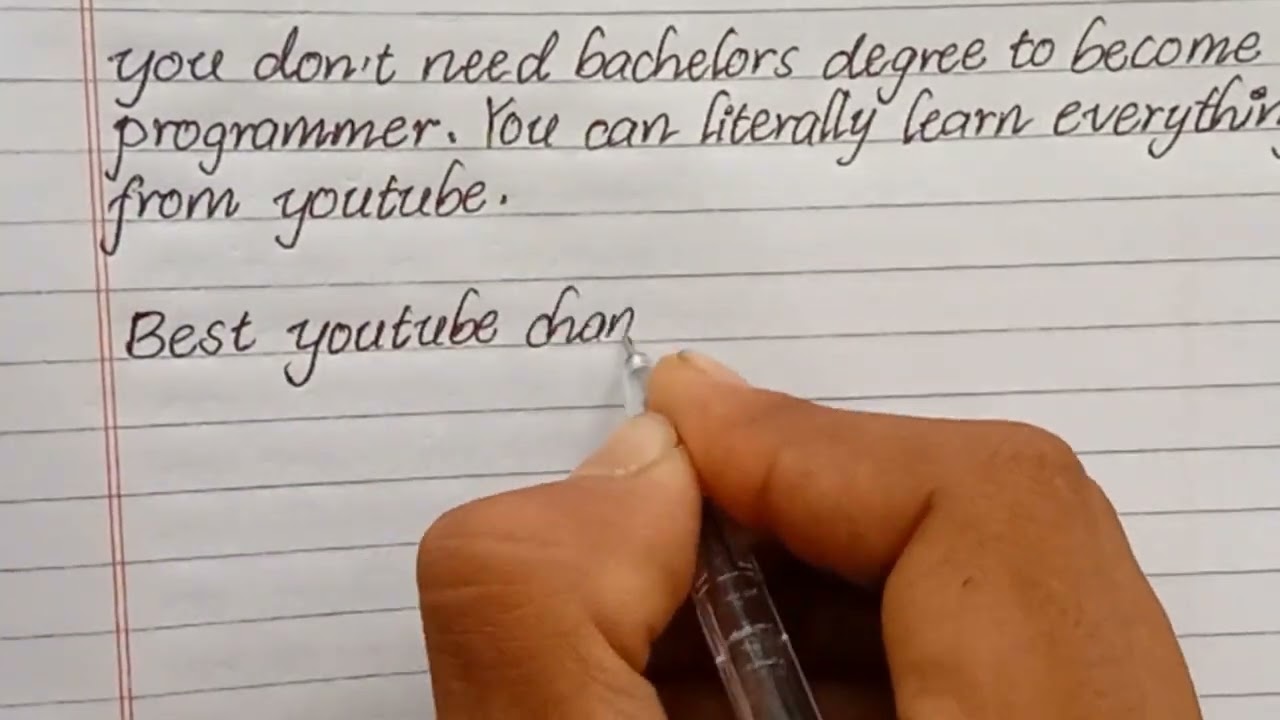 you don't need bachelors degree to become
programmer. You can literally learn everythin
from youtube.
Best youtube chan